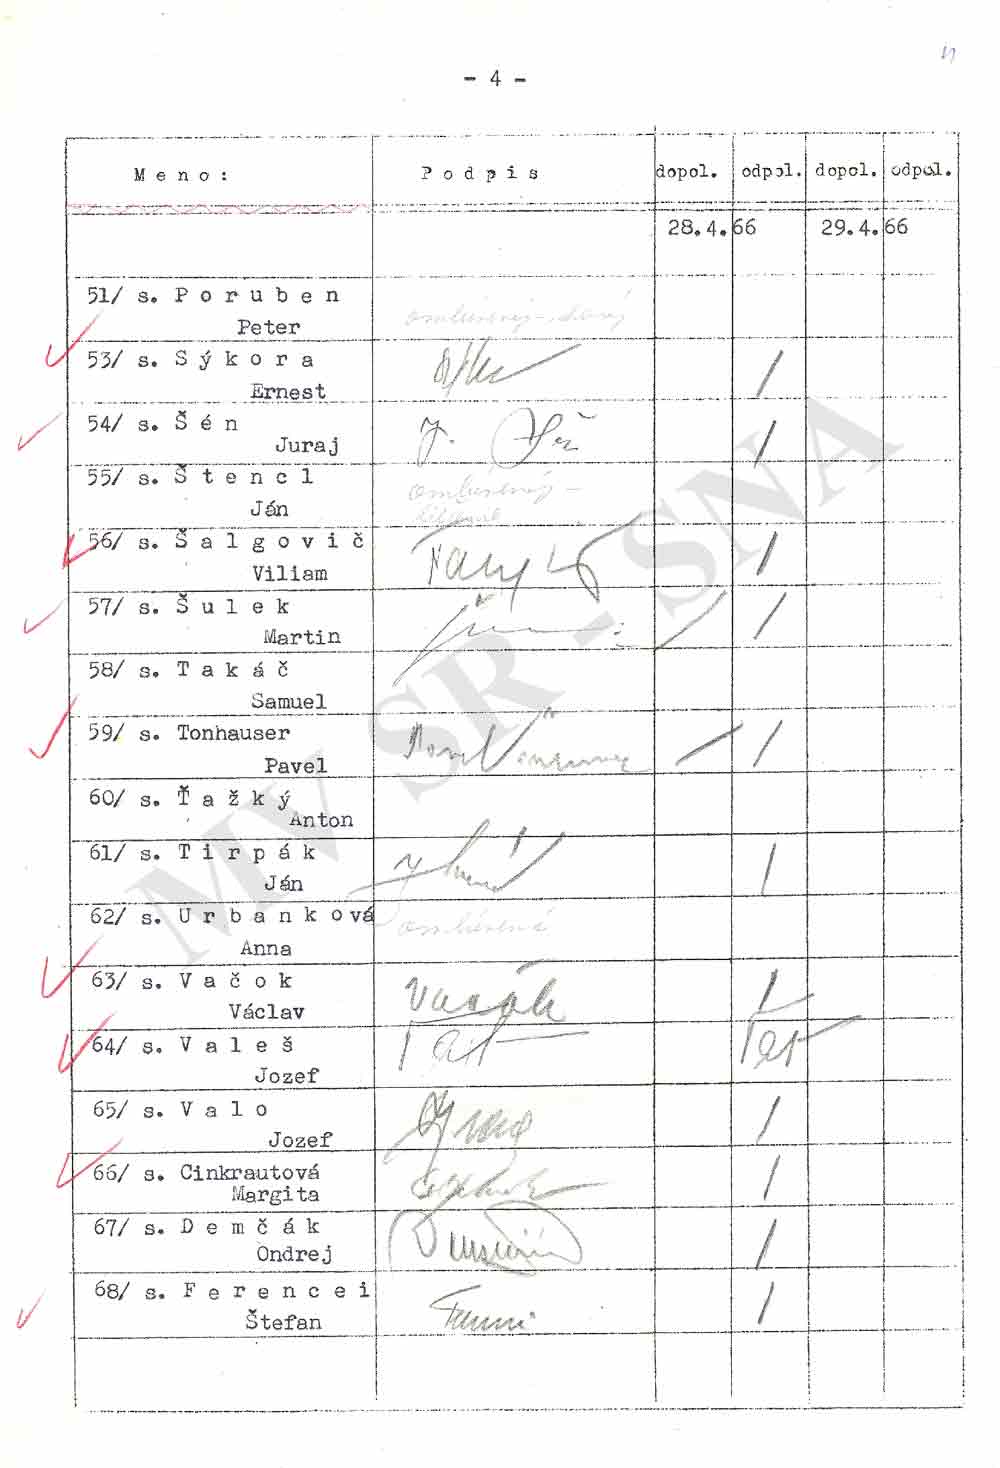 - 4 -
Meno: Podpis dopol. odpol. dopol. odpol.
28.4.66 29.4.66
51/ s. Poruben
Peter
53/ s. Sýkora
Ernest
54/ s. Šén
Juraj
55/ s. Štencl
Ján
56/ s. Šalgovič
Viliam
57/ s. Šulek
Martin
58/ s. Takáč
Samuel
59/ s. Tonhauser
Pavel
60/ s. Ťažký
Anton
61/ s. Tirpák
Ján
62/ s. Urbanková
Anna
63/ s. Vačok
Václav
64/ s. Valeš
Jozef
65/ s. Valo
Jozef
66/ s. Cinkrautová
Margita
67/ s. Demčák
Ondrej
68/ s. Ferencei
Štefan
MV SR - SNA